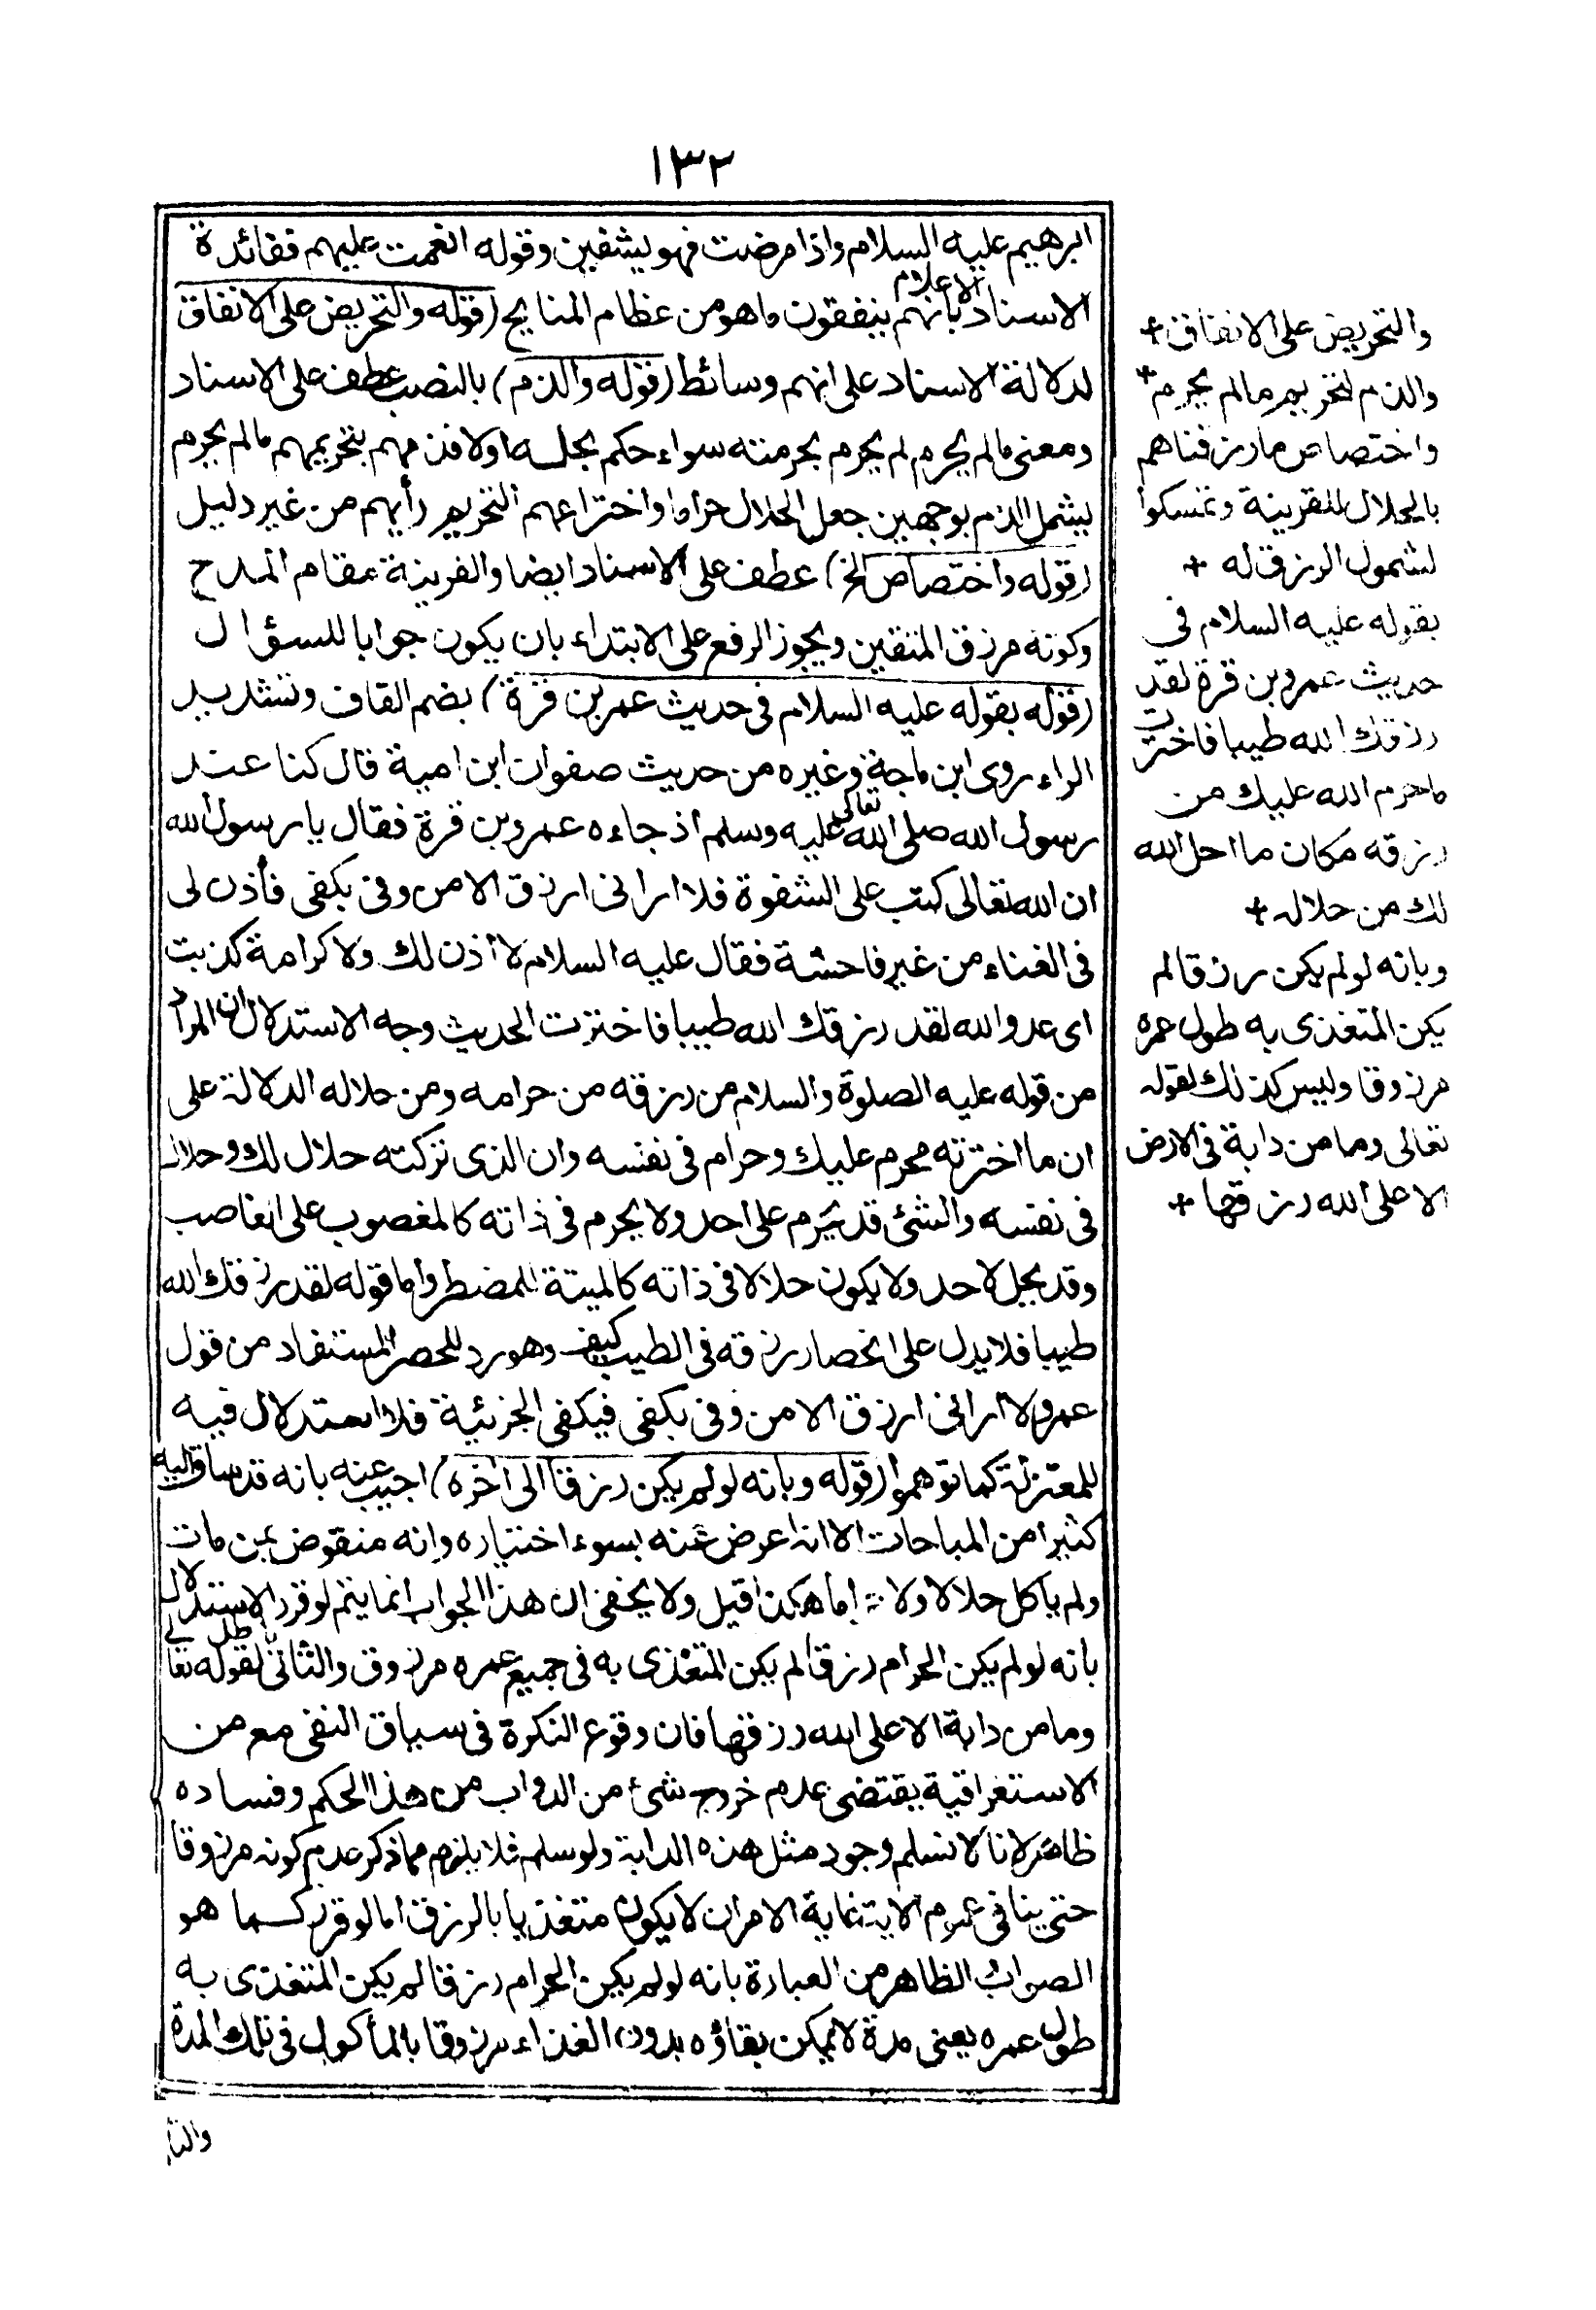 ١٣٢
ابرهيم عليه السلام واذا مرضت فهو يشفين وقوله انعمت عليهم ففائدة
الاسناد الاعلام بانهم ينفقون ما هو من عظام المنايح (قوله والتحريض على الانفاق
لدلالة الاسناد على انهم وسائط (قوله والذم) بالنصب عطف على الاسناد
ومعنى مالم يحرم لم يحرم بحرمته سواء حكم بحله اولا فذمهم بتحريمهم مالم يحرم
يشمل الذم بوجهين جعل الحلال حراما واختراعهم التحريم رأيهم من غير دليل
(قوله واختصاص الخ) عطف على الاسناد ايضا والقرينة مقام المدح
وكونه مرزق المتقين ويجوز الرفع على الابتداء بان يكون جوابا للسؤال
(قوله بقوله عليه السلام فى حديث عمر بن قرة) بضم القاف وتشديد
الراء روى ابن ماجة وغيره من حديث صفوان ابن امية قال كنا عند
رسول الله صلى الله تعالى عليه وسلم اذ جاءه عمرو بن قرة فقال يا رسول الله
ان الله تعالى كتب على الشقوة فلا ارانى ارزق الا من دفى بكفى فأذن لى
فى الغناء من غير فاحشة فقال عليه السلام لا اذن لك ولا كرامة كذبت
اى عدو الله لقد رزقك الله طيبا فاخترت الحديث وجه الاستدلال ان المراد
من قوله عليه الصلوة والسلام من رزقه من حرامه ومن حلاله الدلالة على
ان ما اخترته محرم عليك وحرام فى نفسه وان الذى تركته حلال لك وحلال
فى نفسه والشئ قد يحرم على احد ولا يحرم فى ذاته كالمغصوب على الغاصب
وقد يحل لاحد ولا يكون حلالا فى ذاته كالميتة للمضطر واما قوله لقد رزقك الله
طيبا فلا يدل على انحصار رزقه فى الطيب كيف وهو رد للحصر المستفاد من قول
عمرو لا ارانى ارزق الا من دفى بكفى فيكفى الجزئية فلا استدلال فيه
للمعتزلة كما توهموا (قوله وبانه لو لم يكن رزقا الى آخره) اجيب عنه بانه قد ساق اليه
كثيرا من المباحات الا انه اعرض عنه بسوء اختياره وانه منقوض بمن مات
ولم يأكل حلالا ولا حراما هكذا قيل ولا يخفى ان هذا الجواب انما يتم لو قرر الاستدلال
بانه لو لم يكن الحرام رزقا لم يكن المتغذى به فى جميع عمره مرزوق والثانى باطل لقوله تعالى
وما من دابة الا على الله رزقها فان وقوع النكرة فى سياق النفى مع من
الاستغراقية يقتضى عدم خروج شئ من الدواب من هذا الحكم وفساده
ظاهر لانا لا نسلم وجود مثل هذه الدابة ولو سلم فلا يلزم مما ذكر عدم كونه مرزوقا
حتى ينافى عموم الاية غاية الامر ان لا يكون متغذيا بالرزق اما لو قرر كما هو
الصواب الظاهر من العبارة بانه لو لم يكن الحرام رزقا لم يكن المتغذى به
طول عمره يعنى مدة لا يمكن بقاؤه بدون الغذاء مرزوقا بالمأكول فى تلك المدة
والتا
والتحريض على الانفاق +
والذم لتحريم مالم يحرم +
واختصاص ما رزقناهم
بالحلال للقرينة وتمسكوا
لشمول الرزق له +
بقوله عليه السلام فى
حديث عمرو بن قرة لقد
رزقك الله طيبا فاخترت
ما حرم الله عليك من
رزقه مكان ما احل الله
لك من حلاله +
وبانه لو لم يكن رزقا لم
يكن المتغذى به طول عمره
مرزوقا وليس كذلك لقوله
تعالى وما من دابة فى الارض
الا على الله رزقها +